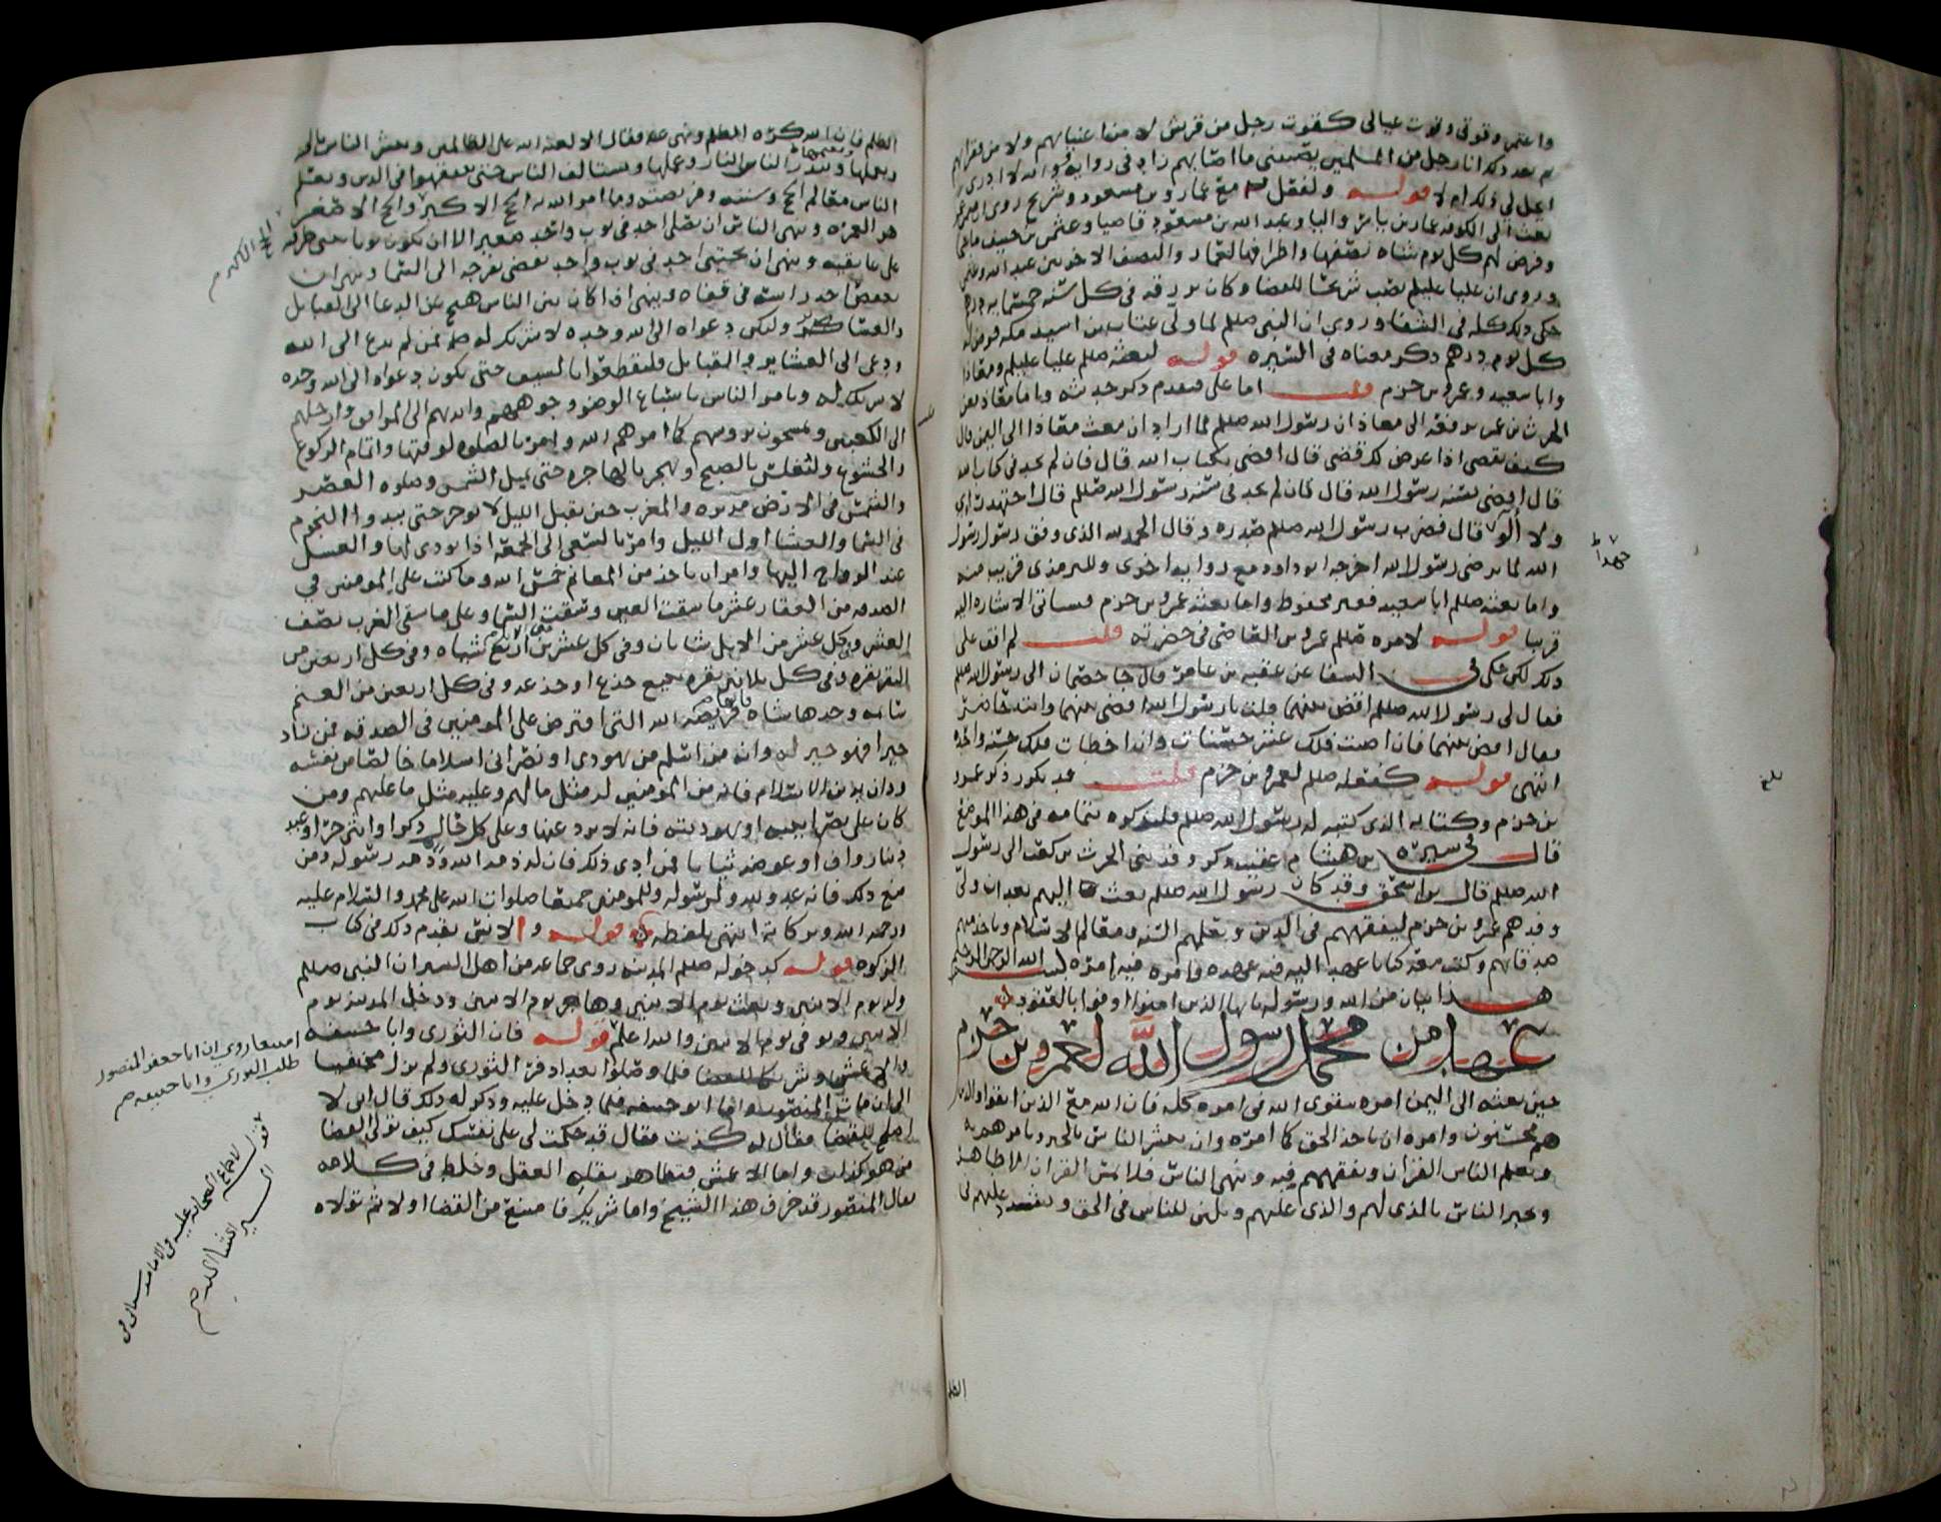 واعتمر وقوتي وقوت عيالي كقوت رجل من قريش لا من اغنيايهم ولا من فقرايهم
ثم بعد ذلك انا رجل من المسلمين يصيبني ما اصابهم زاد في رواية والله لا ادري
ايحل لي ذلك ام لا قوله ولفعل مع عمار وبن مسعود وشريح روي ان عمر
بعث الى الكوفه عمار بن ياسر واليا وعبد الله بن مسعود قاضيا وعثمن بن حنيف
وفرض لهم كل يوم شاه نصفها واطرافها لعمار والنصف الاخر بين عبد الله وعثمن
وروي ان عليا عليلم نصب شريحا للقضا وكان يرزقه في كل سنه خمسمايه درهم
حكى ذلك كله في الشفا وروي ان النبي صللم لما ولى عتاب بن اسيد مكه فرض له
كل يوم درهم ذكر معناه في السيره قوله لبعثه صللم عليا عليلم ومعاذا
وابا سعيد وعمرو بن حزم قلت اما علي فتقدم ذكر حديثه واما معاذ فعن
الحرث بن عمر يرفعه الى معاذ ان رسول الله صللم لما اراد ان يبعث معاذا الى اليمن قال
كيف تقضي اذا عرض لك قضى قال اقضي بكتاب الله قال فان لم تجد في كتاب الله
قال اقضي بسنه رسول الله قال فان لم تجد في سنه رسول الله صللم قال اجتهد رايي
ولا آلو قال فضرب رسول الله صللم صدره وقال الحمد لله الذي وفق رسول رسول
الله لما يرضي رسول الله اخرجه ابو داود مع روايه اخرى وللترمذي قريب منه
واما بعثه صللم ابا سعيد فغير محفوظ واما بعثه عمرو بن حزم فسياتي الاشاره اليه
قريبا قوله لامره صللم عمرو بن العاصي في حضرته قلت لم اقف على
ذلك لكن حكى في الشفا عن عقبه بن عامر قال جا خصمان الى رسول الله صللم
فقال لي رسول الله صللم اقض بينهما قلت يا رسول الله اقضي بينهما وانت حاضر
فقال اقض بينهما فان اصبت فلك عشر حسنات وان اخطات فلك حسنه واحده
انتهى قوله كفعله صللم لعمرو بن حزم قلت قد تكرر ذكر عمرو
بن حزم وكتابه الذي كتبه له رسول الله صللم فلنذكره بتمامه في هذا الموضع
قال في سيره بن هشام عقيب ذكر وفد بني الحرث بن كعب الى رسول
الله صللم قال بن اسحق وقد كان رسول الله صللم بعث اليهم بعد ان ولى
وفدهم عمرو بن حزم ليفقههم في الدين ويعلمهم السنه ومعالم الاسلام وياخذ منهم
صدقاتهم وكتب معه كتابا عهد اليه فيه عهده وامره فيه امره بسم الله الرحمن الرحيم
هذا بيان من الله ورسوله يايها الذين امنوا اوفوا بالعقود
عهد من محمد رسول الله لعمرو بن حزم
حين بعثه الى اليمن امره بتقوى الله في امره كله فان الله مع الذين اتقوا والذين
هم محسنون وامره ان ياخذ الحق كما امره وان يبشر الناس بالخير ويامرهم به
ويعلم الناس القران ويفقههم فيه وينهى الناس فلا يمس القران الا طاهر
ويخبر الناس بالذي لهم والذي عليهم ويلين للناس في الحق ويشتد عليهم في
جهدا ظ
بلغ
الظلم
الظلم فان الله كره الظلم ونهى عنه فقال الا لعنه الله على الظالمين ويبشر الناس بالجنه
وبعملها وينذر الناس النار وعملها ويستالف الناس حتى يفقهوا في الدين ويعلم
الناس معالم الحج وسننه وفريضته وما امر الله به الحج الاكبر والحج الاصغر
هو العمره وينهى الناس ان يصلي احد في ثوب واحد صغير الا ان يكون ثوبا يثني طرفيه
على عاتقيه وينهى ان يحتبي احد في ثوب واحد يفضي بفرجه الى السما وينهى ان
يعقص احد راسه في قفاه وينهى اذا كان بين الناس هيج عن الدعا الى القبايل
والعشاير وليكن دعواه الى الله وحده لا شريك له فمن لم يدع الى الله
ودعى الى العشاير والقبايل فليقطفوا بالسيف حتى يكون دعواه الى الله وحده
لا شريك له ويامر الناس باسباغ الوضو وجوههم وايديهم الى المرافق وارجلهم
الى الكعبين ويمسحون بروسهم كما امرهم الله وامر بالصلوه لوقتها واتمام الركوع
والخشوع ويغلس بالصبح ويهجر بالهاجره حتى تميل الشمس وصلوه العصر
والشمس في الارض مدبره والمغرب حين يقبل الليل لا يوخر حتى يبدوا النجوم
في السما والعشا اول الليل وامر بالسعي الى الجمعه اذا نودي لها والغسل
عند الرواح اليها وامر ان ياخذ من المغانم خمس الله وما كتب على المومنين في
الصدقه من العقار عشر ما سقت العين وسقت السما وعلى ما سقى الغرب نصف
العشر وفي كل عشر من الابل شاتان وفي كل عشرين اربع شياه وفي كل اربعين من
البقر بقره وفي كل ثلاثين بقره تبيع جذع او جذعه وفي كل اربعين من الغنم
سايمه وحدها شاه فانها فريضه الله التي افترض على المومنين في الصدقه فمن زاد
خيرا فهو خير له وانه من اسلم من يهودي او نصراني اسلاما خالصا من نفسه
ودان بدين الاسلام فانه من المومنين له مثل ما لهم وعليه مثل ما عليهم ومن
كان على نصرانيته او يهوديته فانه لا يرد عنها وعلى كل حالم ذكر او انثى حر او عبد
دينار واف او عوضه ثيابا فمن ادى ذلك فان له ذمه الله وذمه رسوله ومن
منع ذلك فانه عدو لله ولرسوله وللمومنين جميعا صلوات الله على محمد والسلام عليه
ورحمه الله وبركاته انتهى بلفظه قوله والانثى تقدم ذلك في كتاب
الزكوه قوله كدخوله صللم المدينه روى جماعه من اهل السير ان النبي صللم
ولد يوم الاثنين وبعث يوم الاثنين وهاجر يوم الاثنين ودخل المدينه يوم
الاثنين وتوفي يوم الاثنين والله اعلم قوله فان الثوري وابا حنيفه
والاعمش وشريكا للقضا فلما وصلوا بغداد فر الثوري ولم يزل مختفيا
الى ان مات المنصور واما ابو حنيفه فلما دخل عليه وذكر له ذلك قال اني لا
اصلح للقضا فقال له كذبت فقال قد حكمت لي على نفسك كيف تولي القضا
من هو كذاب واما الاعمش فتظاهر بقله العقل وخلط في كلامه
فقال المنصور قد خرف هذا الشيخ واما شريك فامتنع من القضا اولا ثم تولاه
امتنعا روي ان ابا جعفر المنصور
طلب الثوري وابا حنيفه صح
قوله لاجماع الصحابه عليه في الامامه سياتي في
السير ان شا الله صح